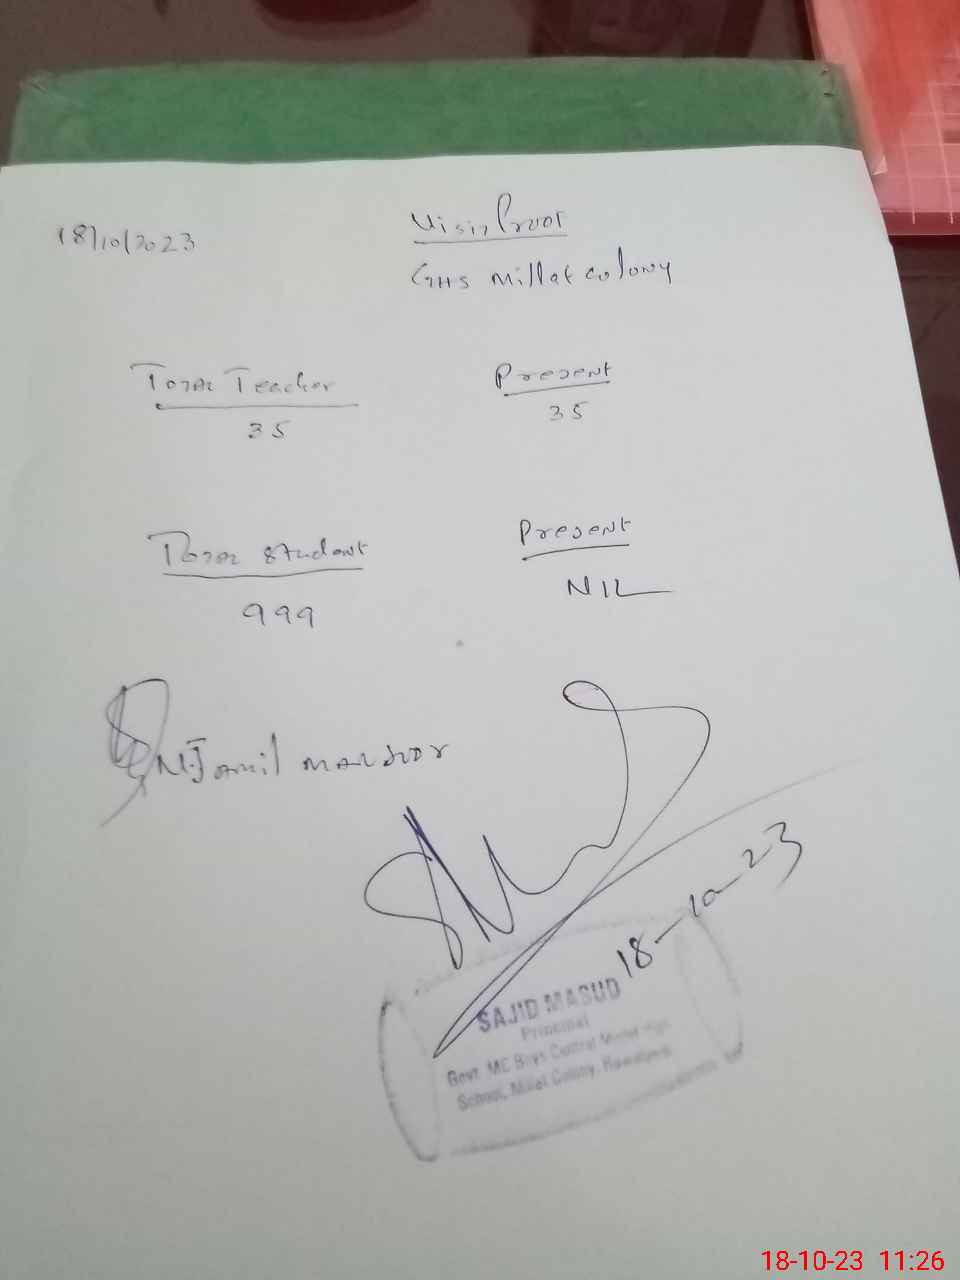 18/10/2023
Visit Proof
GHS Millat colony
Total Teacher
35
Present
35
Total student
999
Present
NIL
M.Jamil manzoor
18-10-23
SAJID MASUD
Principal
Govt. MC Boys Central Model High
School, Millat Colony,
18-10-23 11:26